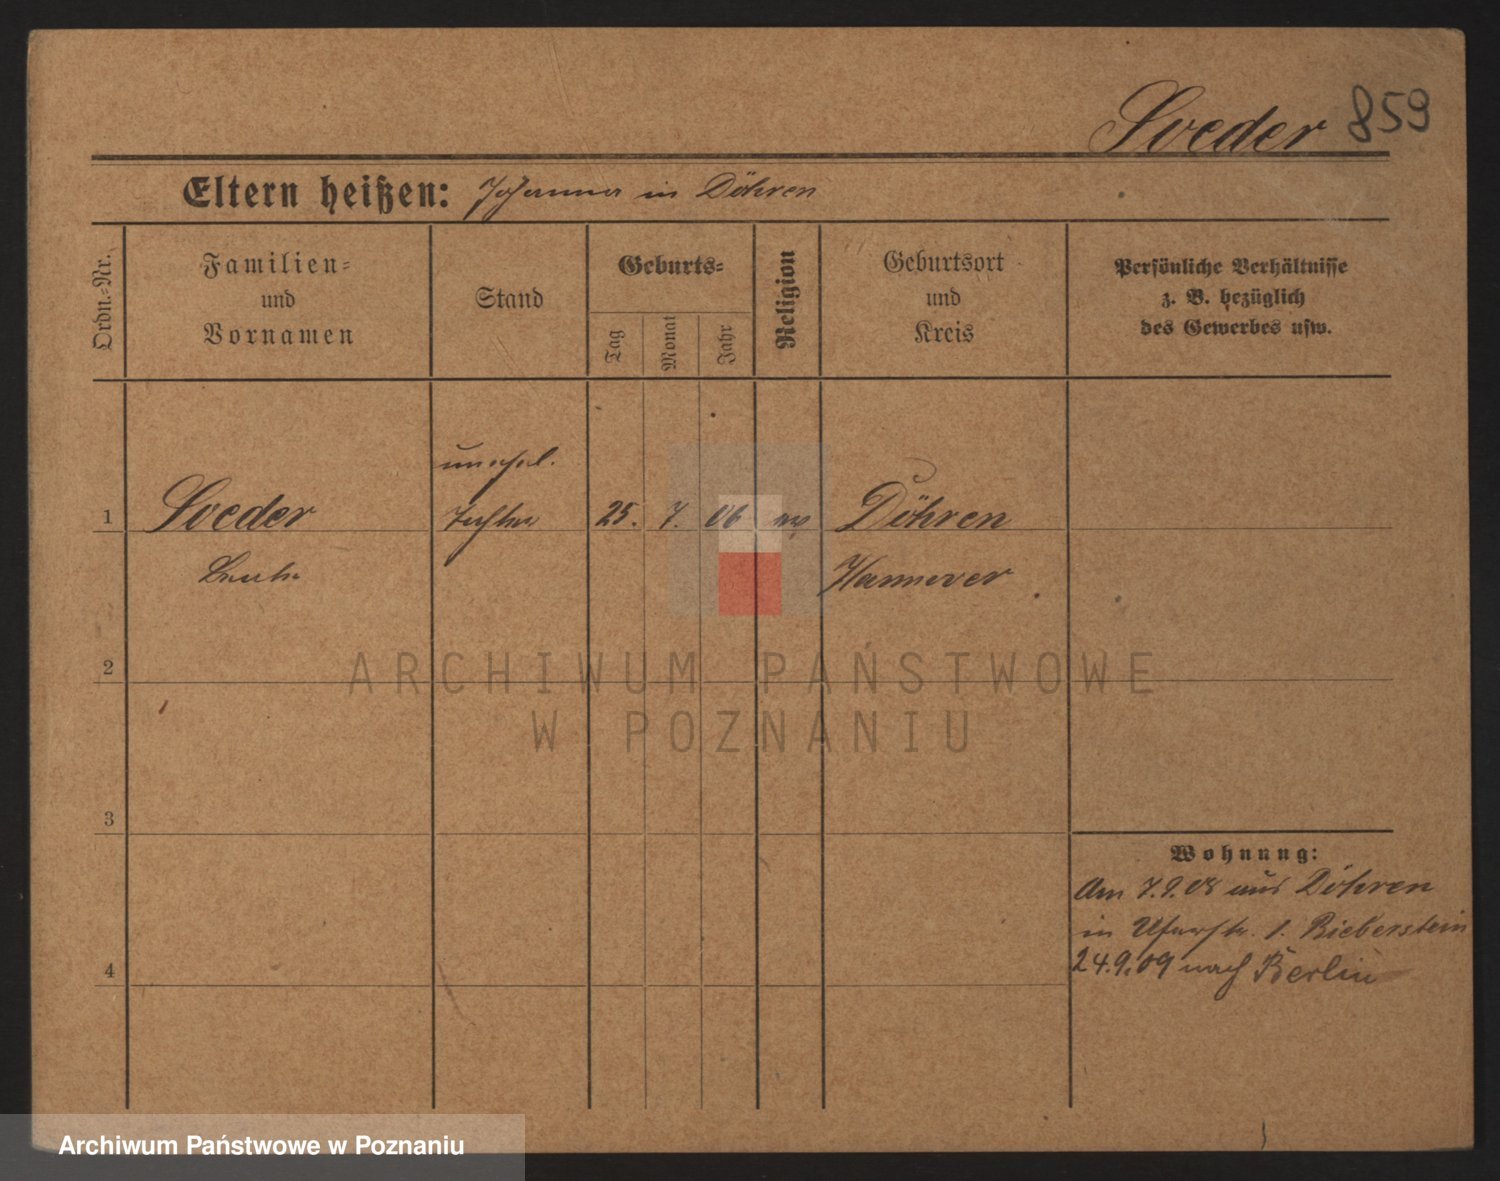 Soeder 859
Eltern heißen: Johanna in Döhren
Ordn.-Nr.
Familien-
und
Vornamen
Stand
Geburts-
Tag
Monat
Jahr
Religion
Geburtsort
und
Kreis
Persönliche Verhältnisse
z. B. bezüglich
des Gewerbes usw.
unehel.
1 Soeder Tochter 25. 7. 06 ev Döhren
Hannover
2
ARCHIWUM PAŃSTWOWE
W POZNANIU
3
Wohnung:
Am 7.9.08 aus Döhren
in Uferstr. 1. Bieberstein
24.9.09 nach Berlin
4
Archiwum Państwowe w Poznaniu